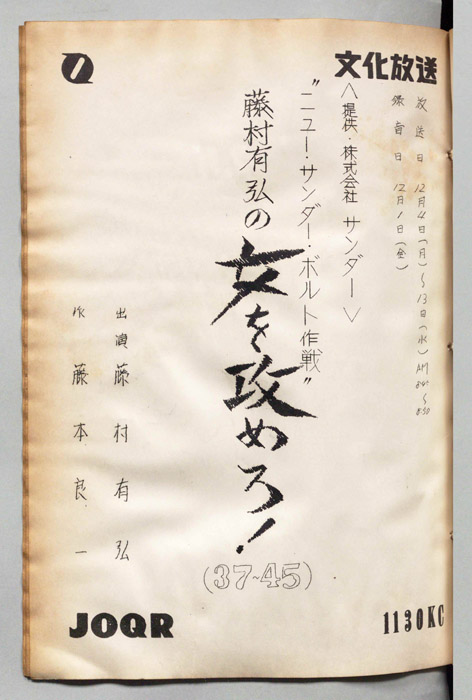 文化放送
放送日 12月4日(月)〜13日(水) AM 8:45〜8:50
録音日 12月1日(金)
<提供・株式会社 サンダー>
"ニュー・サンダー・ボルト作戦"
藤村有弘の女を攻めろ!
(37~45)
出演 藤村有弘
作 藤本良一
JOQR
1130KC